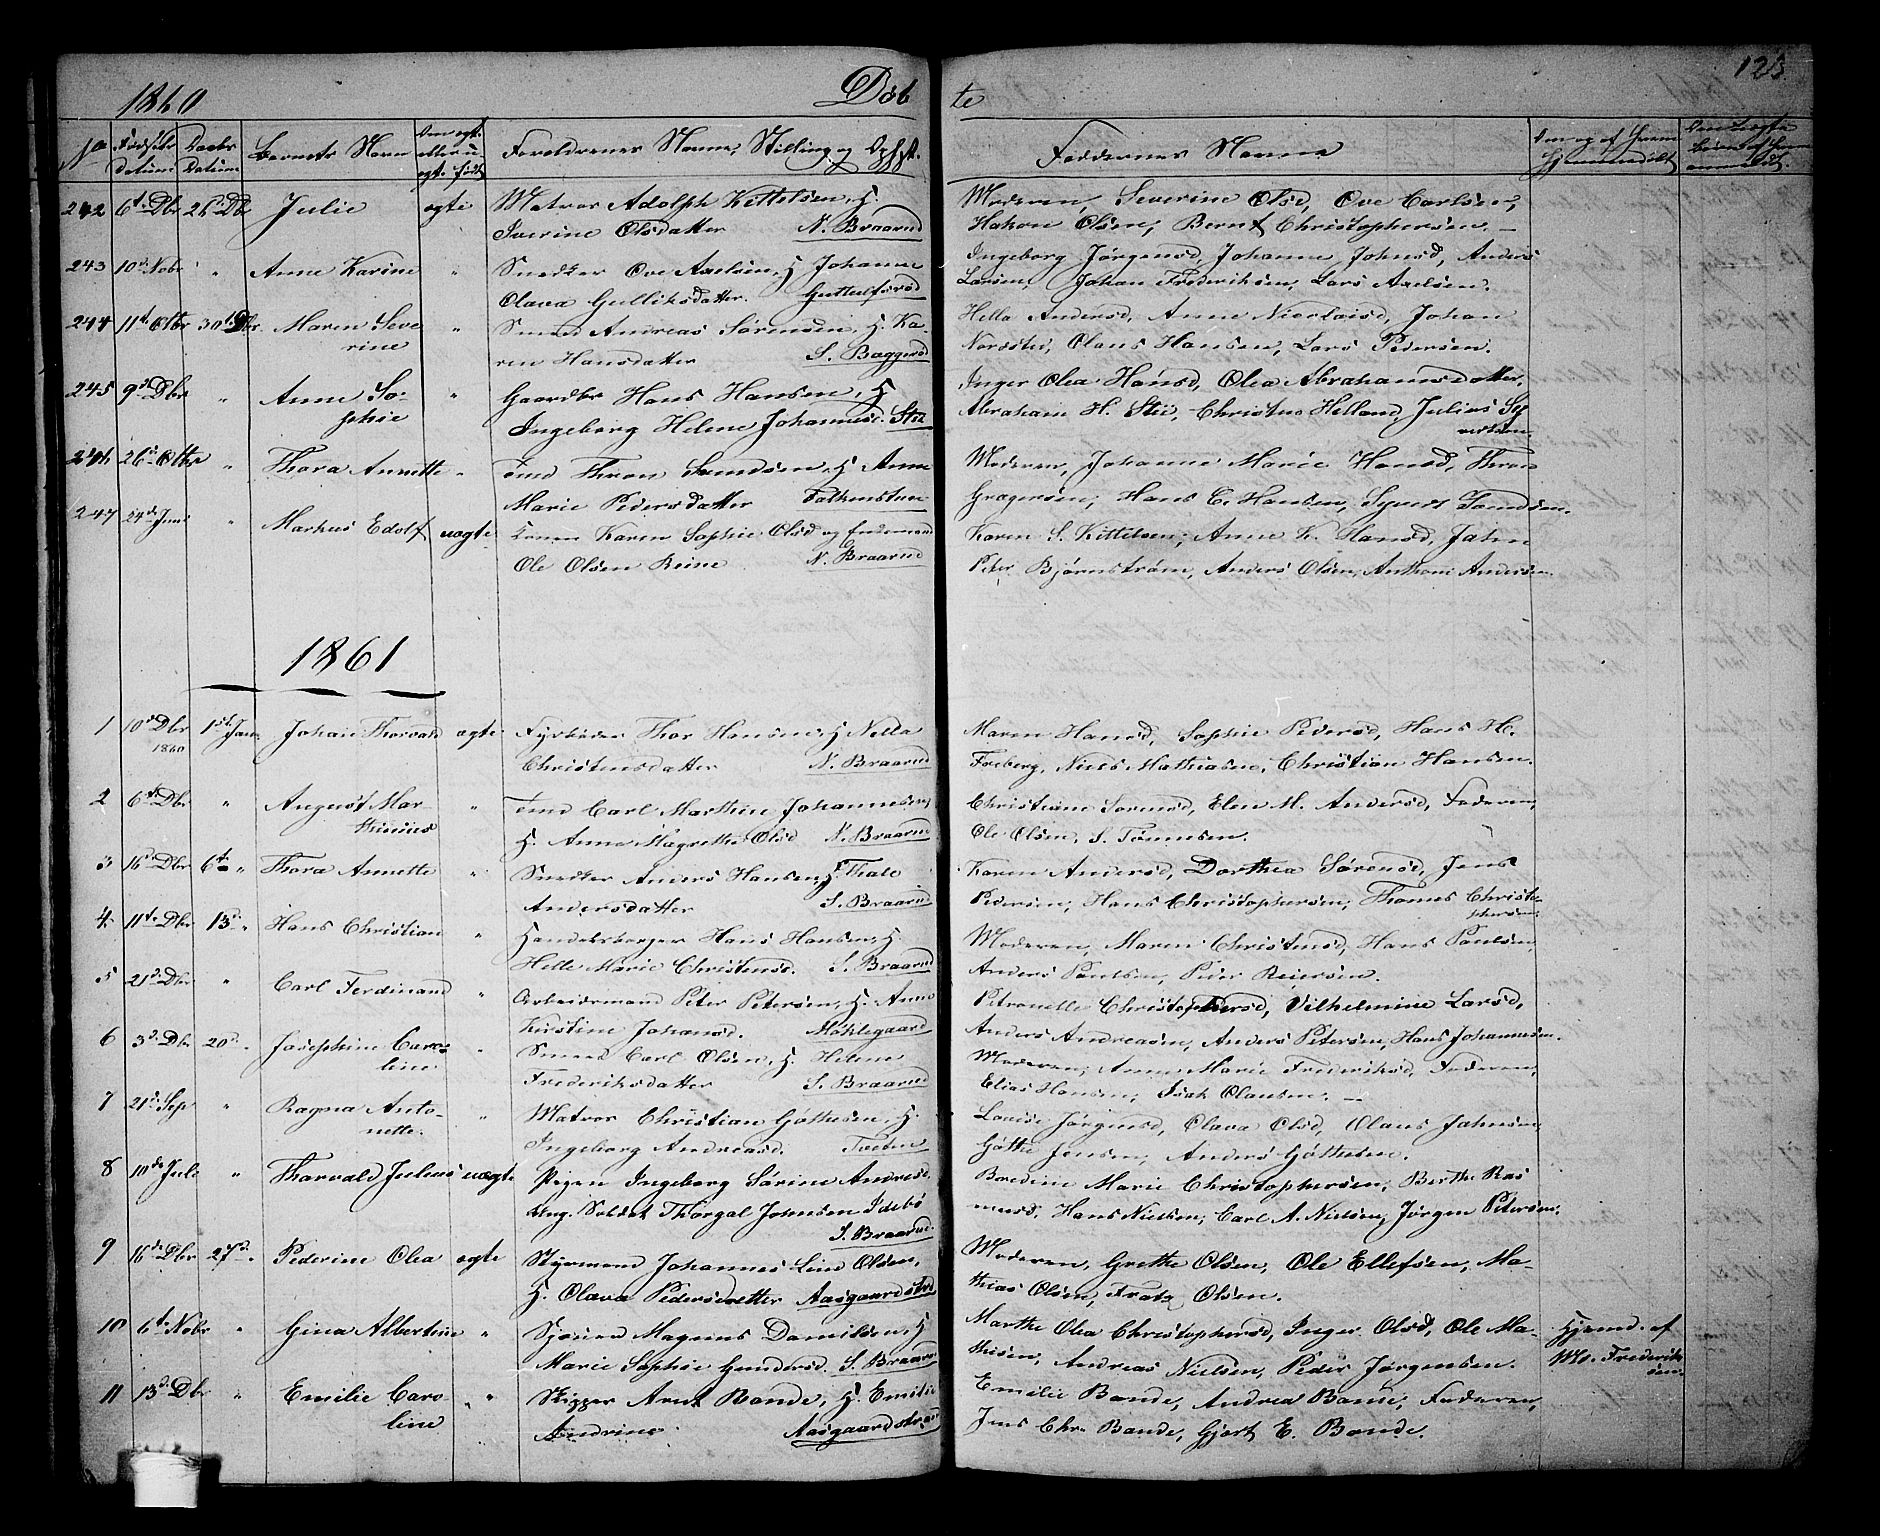 1860 Døb
te 123
No Fødsels datum Daabs Datum Barnets Navn Om ægte eller uægte født Forældrenes Navne, Stilling og Opholdst.
Faddernes Navne
242 6te Dbr 26 Dbr Julie ægte Matros Adolph Kittelsen, H.
Severine Olsdatter N. Braarud
Moderen, Severine Olsd, Ove Carlsen,
Hakon Olsen, Bernt Christophersen.
243 10de Nobr " Anne Karine " Snedker Ove Axelsen, H Johanne
Olava Gulliksdatter.
Ingeborg Jørgensd, Johanne Johnsd, Anders
Larsen, Johan Frederiksen, Lars Axelsen.
244 11te Oktbr 30te Dbr. Maren Seve
rine " Smed Andreas Sørensen, H Ka-
ren Hansdatter S. Baggerød
Hella Andersd, Anne Nicolaisd, Johan
Olaus Hansen, Lars Pedersen.
245 9de Dbr " Anne So-
phie " Gaardbr Hans Hansen, H
Ingeborg Helene Johannesd. Stii
Inger Olea Hansd, Olea Abrahamsdatter,
Abraham H. Stii, Christen Helland, Julius Sy
vertsen.
246 26de Oktbr " Thora Annette " Tmd Thron Samdsen, H Anne
Marie Pedersdatter Falkensten
Moderen, Johanne Marie Hansd, Thron
Gragersen, Hans C. Hansen, Syvert Samdsen.
247 24de Juni " Markus Edolf uægte Konen Karen Sophie Olsd og Enkemand
Ole Olsen Reine N. Braarud
Karen S. Kittelsen, Anne K. Hansd, Johan
Peter Bjørnstrøm, Anders Olsen, Anthoni Andersen.
1861
1 10de Dbr 1860 1ste Jan. Johan Thorvald ægte Fyrbøder Thor Hansen, H Nella
Christensdatter N. Braarud
Maren Hansd, Sophie Pedersd, Hans H.
Freberg, Niels Mathiasen, Christian Hansen.
2 6te Dbr " August Mar
thinius " Tmd Carl Marthin Johannesen,
H. Anne Magrethe Olsd N. Braarud
Christiane Sørensd, Elen M. Andersd, Faderen,
Ole Olsen, S. Tønnesen.
3 16de Dbr 6te " Thora Annette " Snedker Anders Hansen, H Thale
Andersdatter S. Braarud
Karen Andersd, Dorthea Sørensd, Jens
Pedersen, Hans Christophersen, Thomas Christo-
phersen.
4 11te Dbr 13de " Hans Christian " Handelsborger Hans Hansen, H.
Helle Marie Christensd. S. Braarud
Moderen, Maren Christensd, Hans Paulsen,
Anders Paulsen, Peder Reiersen.
5 21de Dbr " Carl Ferdinand " Arbeidsmand Peter Petersen, H. Anne
Kirstine Johansd. Møklegaard
Petronelle Christophersd, Vilhelmine Larsd,
Anders Andreasen, Anders Petersen, Hans Johannesen.
6 3de Dbr 20de " Josephine Caro
line " Smed Carl Olsen, H Helene
Frederiksdatter S. Braarud
Moderen, Anne Marie Frederiksd, Faderen,
Elias Hansen, Isak Olausen.
7 21de Sep " Ragna Anto-
nette. " Matros Christian Gøthesen, H.
Ingeborg Andreasd. Toften
Lovise Jørgensd, Olava Olsd, Olaus Johnsen,
Gøthe Jensen, Anders Gøthesen.
8 10de Juli " Thorvald Julius uægte Pigen Ingeborg Sørine Andersd.
Ung. Soldat Thorgal Johnsen Idebø
S. Braarud.
Bredine Marie Christophersen, Berthe Ras
musd, Hans Nielsen, Carl A. Nielsen, Jørgen Petersen.
9 16de Dbr 27de " Pederine Olea ægte Styrmand Johannes Lind Olsen,
H. Olava Pedersdatter Aasgaardstrd
Moderen, Grethe Olsen, Ole Ellefsen, Ma-
thias Olsen, Fratz Olsen.
10 6te Nobr " Gina Albertine " Sjømd Magnus Danielsen, H
Marie Sophie Gundersd. S. Braarud
Marthe Olea Christophersd, Inger Olsd, Ole Ma-
thisen, Andreas Nielsen, Peder Jørgensen.
Hjemd. af
Md. Frederik
sen.
11 13de Dbr " Emilie Caro-
line " " Skipper Arnt Bande, H. Emilie
Andrine Aasgaardstrand
Emilie Bande, Andrea Bande, Faderen,
Jens Chr. Bande, Gjert E. Bande.